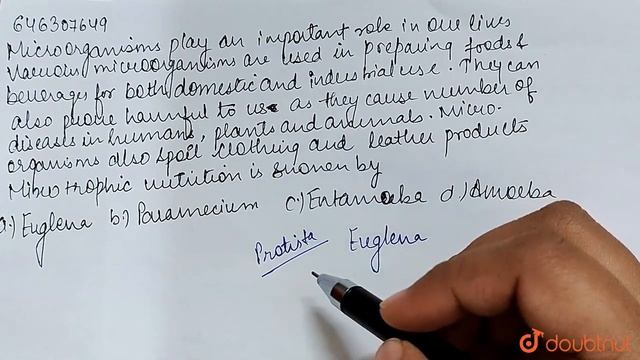 646307649
Microorganisms play an important role in our lives
various microorganisms are used in preparing foods &
beverages for both domestic and industrial use. They can
also prove harmful to us as they cause number of
diseases in humans, plants and animals. Micro-
organisms also spoil clothing and leather products
Mixotrophic nutrition is shown by
a.) Euglena b.) Paramecium c.) Entamoeba d.) Amoeba
Protista Euglena
doubtnut